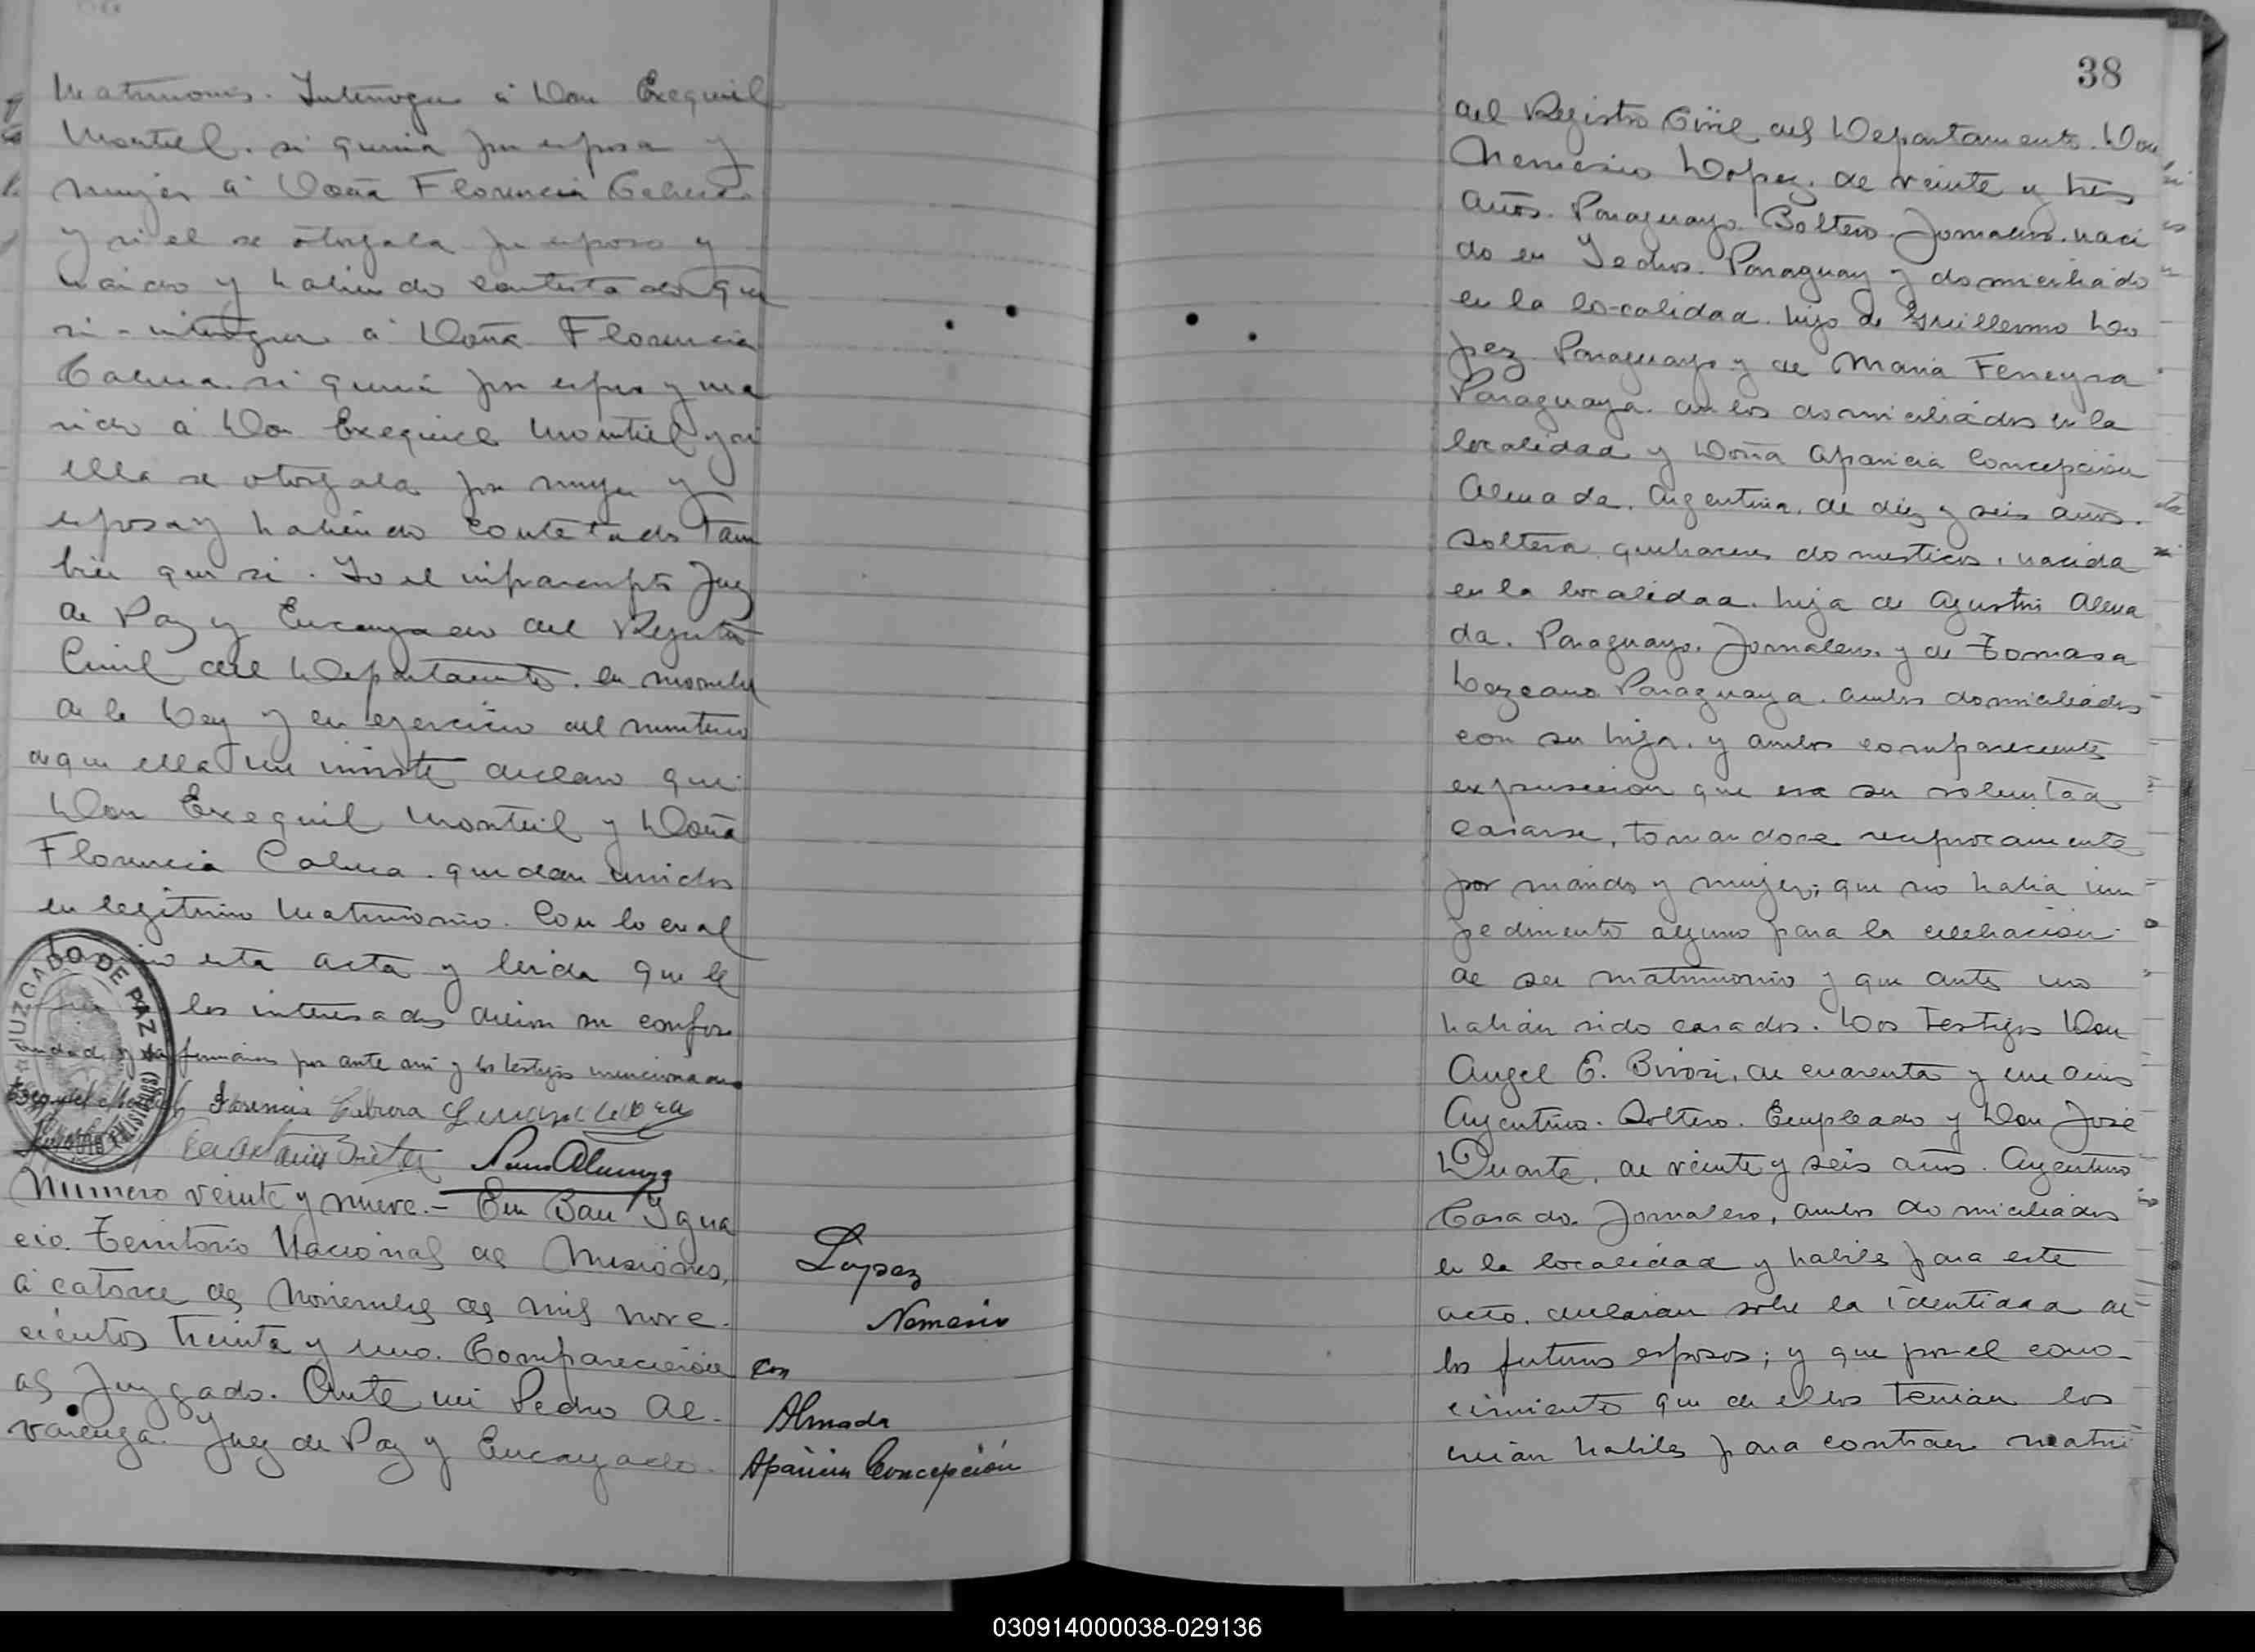 Matrimonio. Interrogue a Don Exequiel
Montiel. si queria por esposa y
mujer a Doña Florencia Cabrera
y si el se otorgaba por esposo y
marido y habiendo contestado que
si - interrogue a Doña Florencia
Cabrera. si queria por esposo y ma
rido a Don Exequiel Montiel y si
ella se otorgaba por mujer y
esposa y habiendo contestado tam
bien que si. Yo el infrascripto Juez
de Paz y Encargado del Registro
Civil del Departamento. en nombre
de la Ley y en ejercicio del ministerio
de que ella me inviste declaro que
Don Exequiel Montiel y Doña
Florencia Cabrera. quedan unidos
en legitimo Matrimonio. Con lo cual
esta acta y leida que le
los interesados dieron su confor
midad y la firmaron por ante mi y los testigos mencionados
JUZGADO DE PAZ
Exequiel Montiel Florencia Cabrera
Numero veinte y nueve. - En Bau Ygua
cio. Territorio Nacional de Misiones,
a catorce de Noviembre de mil nove-
cientos treinta y uno. Comparecieron
al Juzgado. Ante mi Pedro Al-
varenga. Juez de Paz y Encargado.
Lopez
Nemesio
con
Almada
Aparicia Concepción
38
del Registro Civil del Departamento. Don
Nemesio Lopez. de veinte y tres
años. Paraguayo. Soltero. Jornalero. naci
do en Paraguay y domiciliado
en la localidad. hijo de Guillermo Lo
pez Paraguayo y de Maria Ferreyra
Paraguaya. ambos domiciliados en la
localidad y Doña Aparicia Concepción
Almada. Argentina. de diez y seis años.
Soltera. quehaceres domesticos. nacida
en la localidad. hija de Agustin Alma
da. Paraguayo. Jornalero. y de Tomasa
Lezcano Paraguaya. ambos domiciliados
con su hija. y ambos comparecientes
expusieron que era su voluntad
casarse, tomandose reciprocamente
por marido y mujer; que no habia im
pedimento alguno para la celebracion
de su matrimonio y que antes no
habian sido casados. Los Testigos Don
Angel E. de cuarenta y un años
Argentino. Soltero. Empleado y Don José
Duarte. de veinte y seis años. Argentino
Casado. Jornalero, ambos domiciliados
en la localidad y habiles para este
acto. declaran sobre la identidad de
los futuros esposos; y que por el cono-
cimiento que de ellos tenian los
creian habiles para contraer matri
030914000038-029136